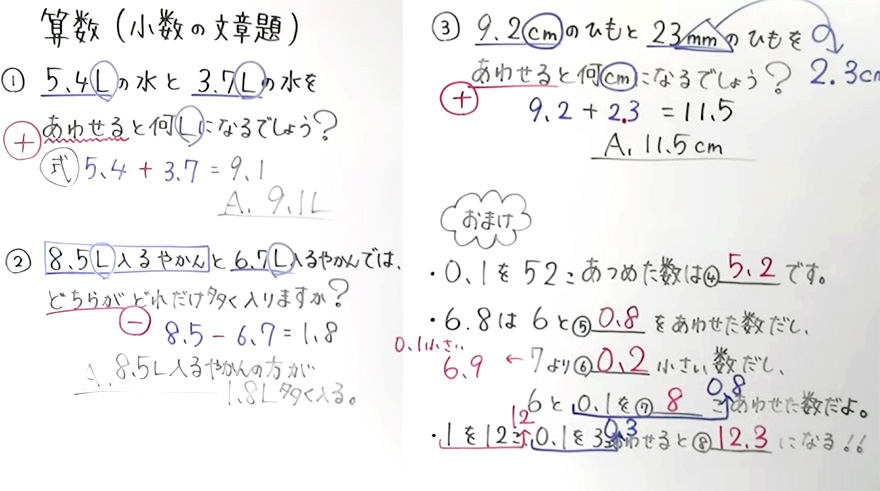 算数(小数の文章題)
① 5.4Lの水と3.7Lの水を
あわせると何Lになるでしょう?
+
式 5.4 + 3.7 = 9.1
A. 9.1L
② 8.5L入るやかんと6.7L入るやかんでは、
どちらがどれだけ多く入りますか?
−
8.5 − 6.7 = 1.8
A. 8.5L入るやかんの方が
1.8L多く入る。
③ 9.2cmのひもと23mmのひもを
2.3cm
あわせると何cmになるでしょう?
+
9.2 + 2.3 = 11.5
A. 11.5cm
おまけ
・0.1を52こあつめた数は④5.2です。
・6.8は6と⑤0.8をあわせた数だし、
0.1小さい
6.9 ← 7より⑥0.2小さい数だし、
0.8
6と0.1を⑦8こあわせた数だよ。
12
0.3
・1を12こ、0.1を3こあわせると⑧12.3になる!!